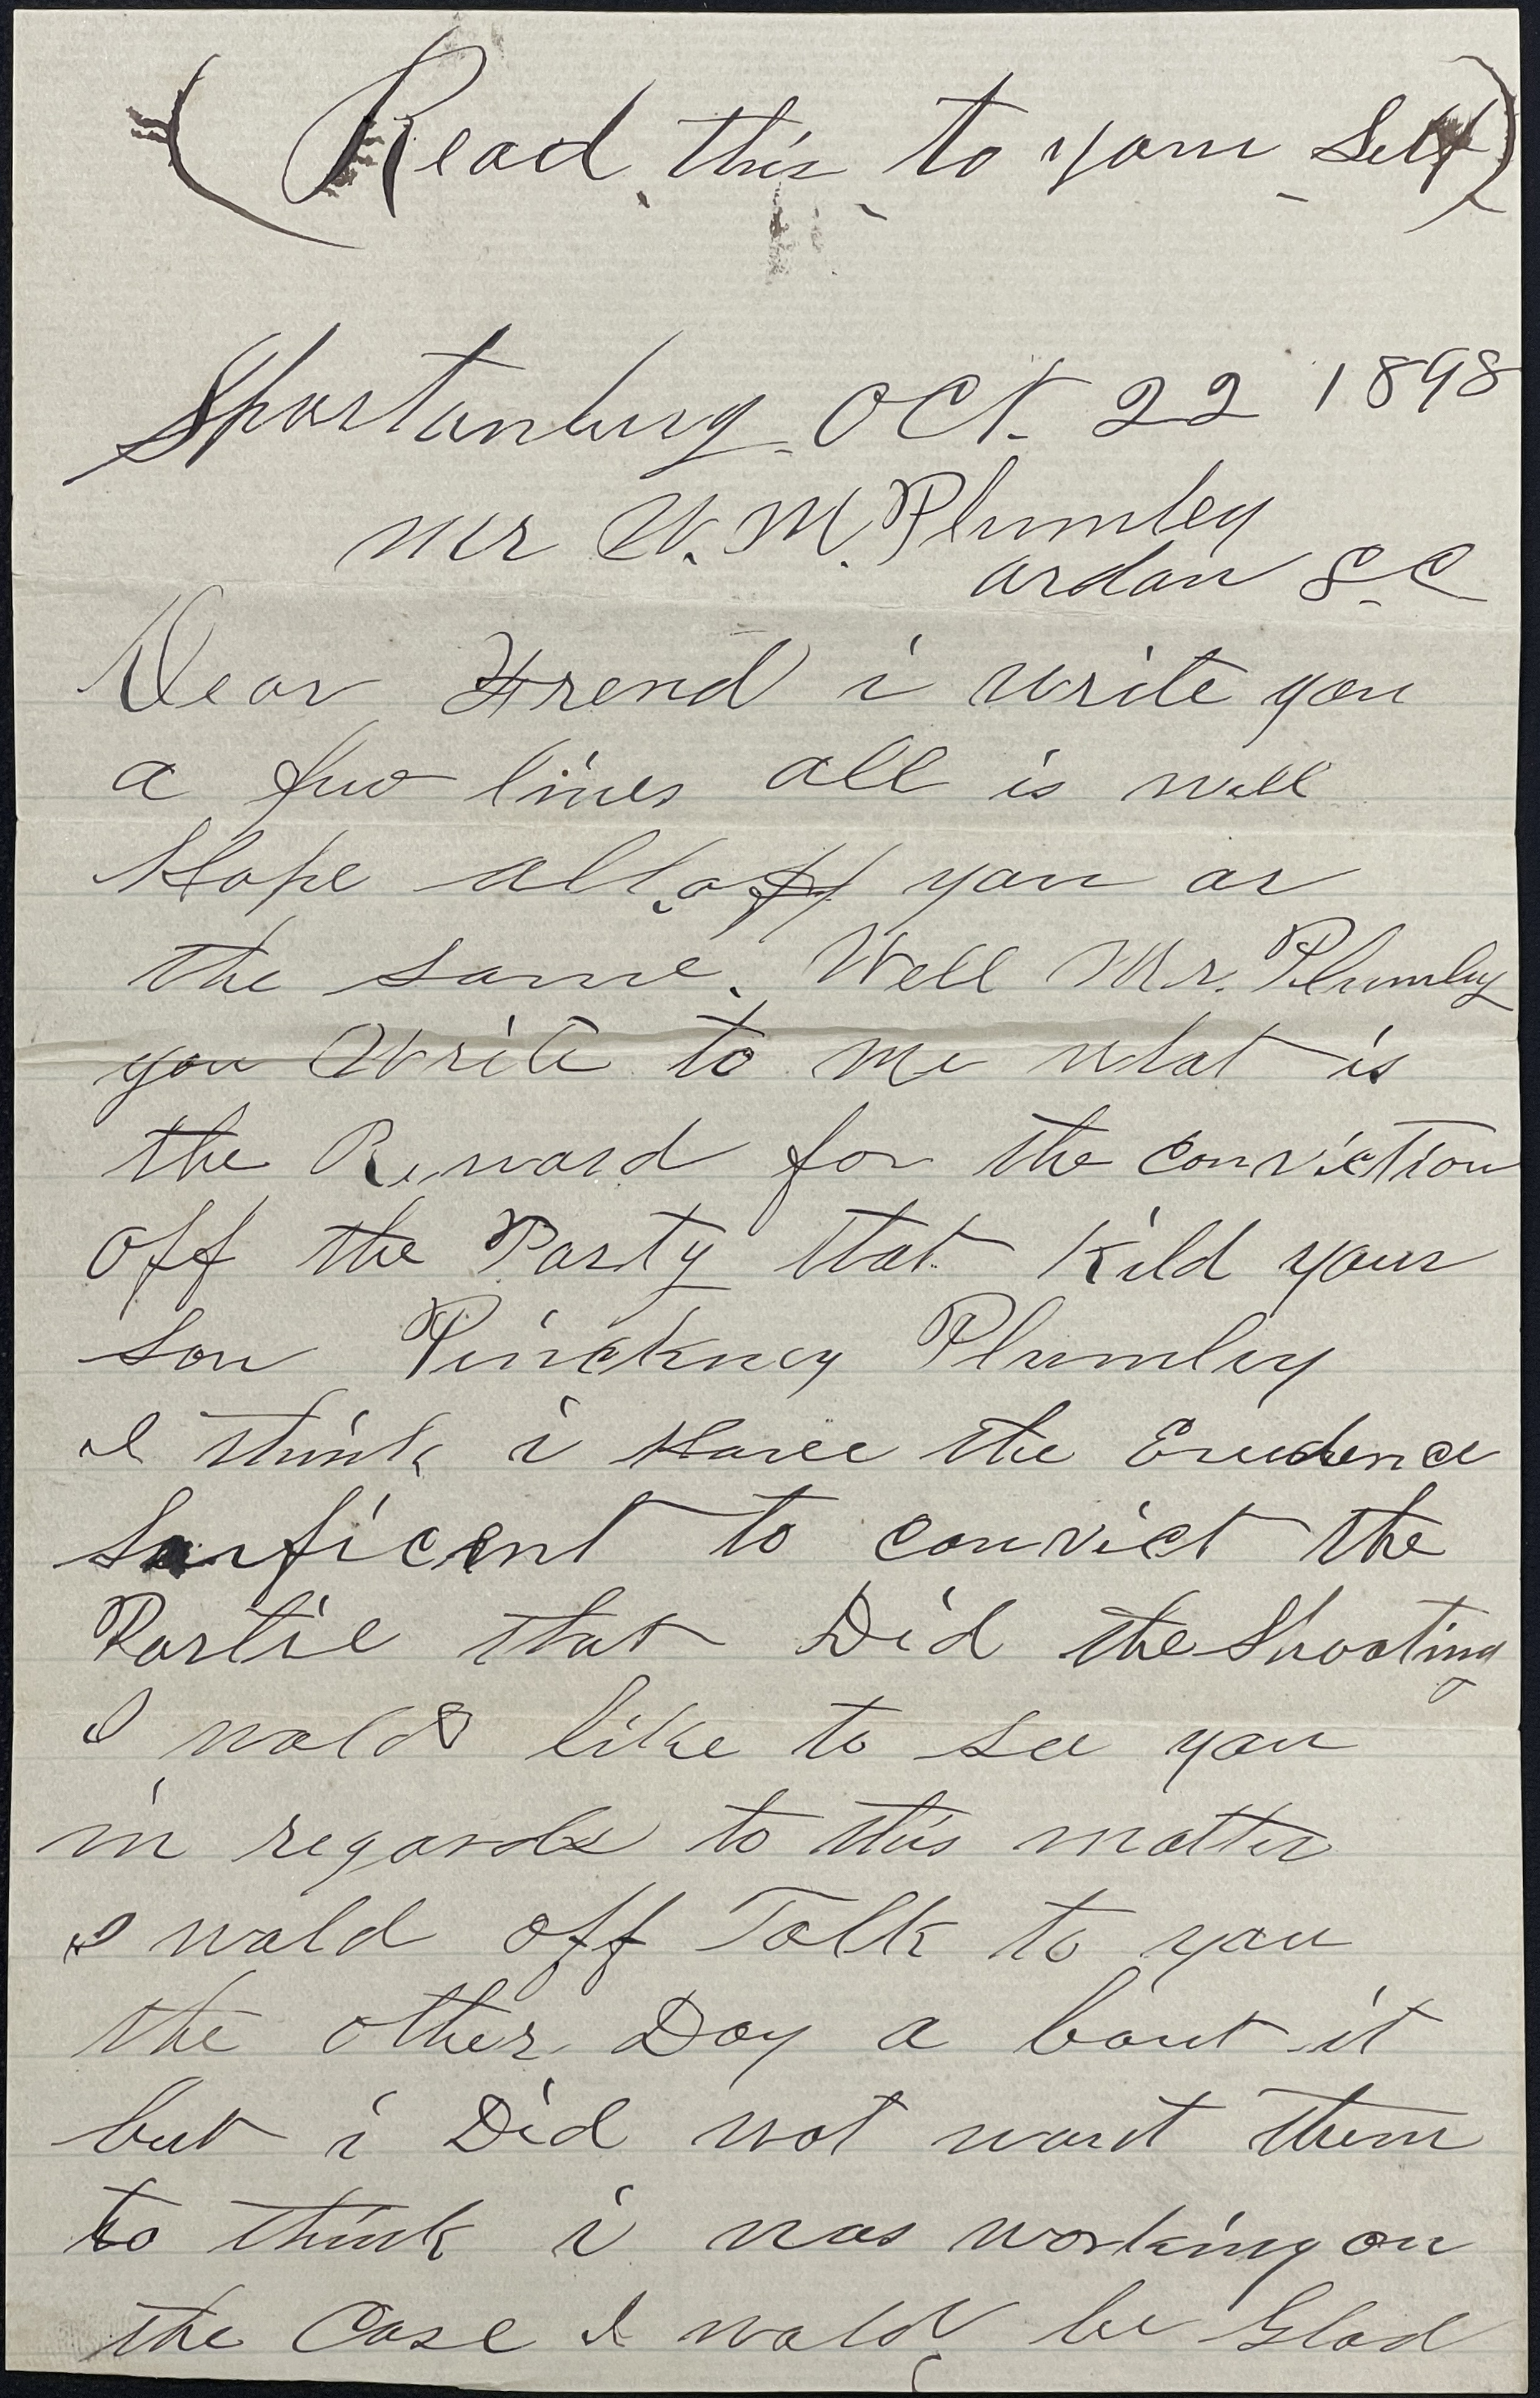 (Read this to your Self)
Spartanburg Oct. 22 1898
Mr W. M. Plumley
ardan S.C
Dear Frend i write you
a few lines all is well
Hope all off you ar
the same. Well Mr. Plumley
you Write to me what is
the Reward for the conviction
off the Party that Kild your
son Pinckney Plumley
I think i Have the Evedence
Suficent to convict the
Partie that Did the Shooting
I wold like to see you
in regards to this matter
I wold off Talk to you
the other Day a bout it
but i Did not want them
to think i was working on
the Case I wold be Glad